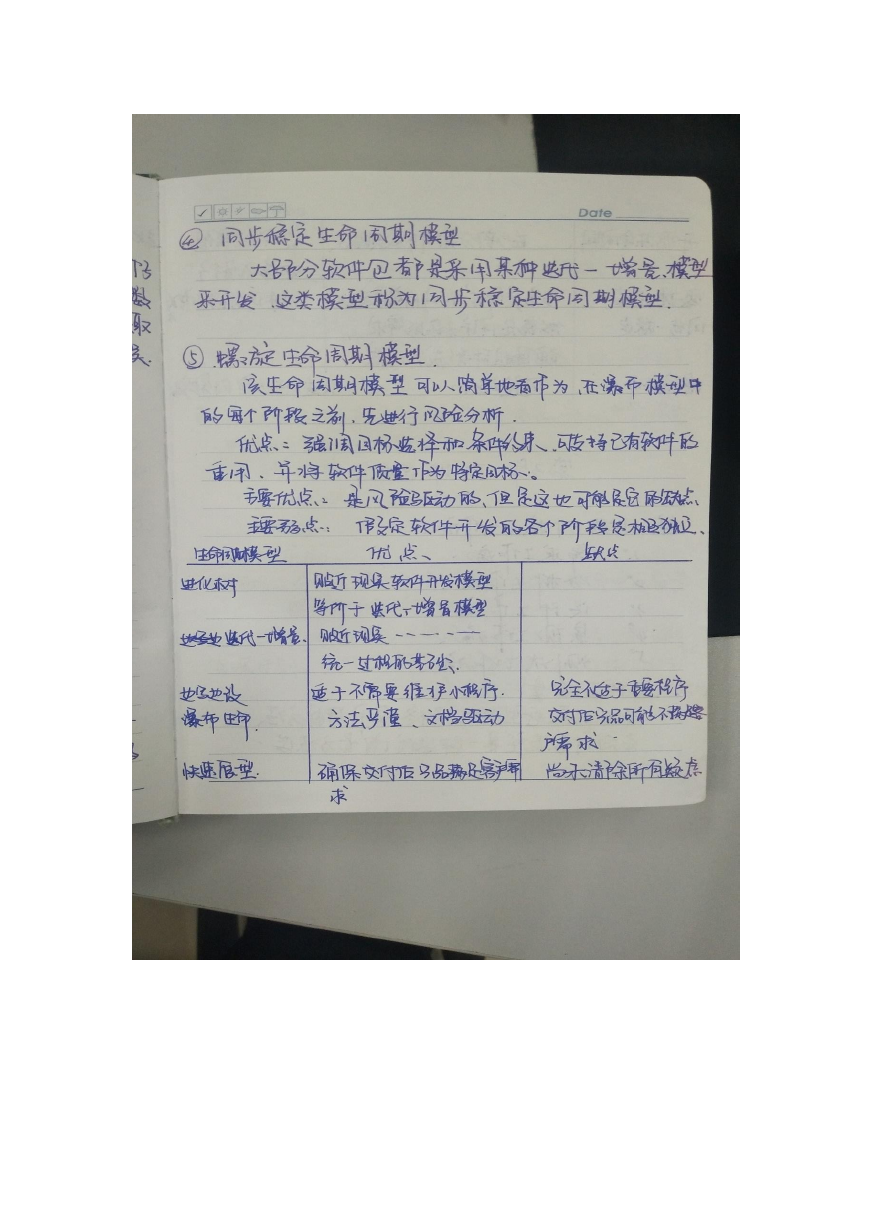 Date
④ 同步稳定生命周期模型
大部分软件包都是采用某种迭代-增量模型
来开发、这类模型称为同步稳定生命周期模型.
⑤ 螺旋生命周期模型.
该生命周期模型可以简单地看作为,在瀑布模型中
的每个阶段之前,先进行风险分析.
优点:强调目标选择和条件约束、可支持已有软件的
重用、并将软件质量作为特定目标、.
主要优点:是风险驱动的,但是这也可能是它的缺点
主要弱点:假定软件开发的各个阶段是相互独立、
生命周期模型 优点、 缺点
进化树 贴近现实软件开发模型
等价于迭代-增量模型
迭代-增量. 贴近现实------
统一过程的基础、
边写边改 适于不需要维护小程序. 完全不适于重要程序
瀑布生命. 方法严谨、文档驱动 交付后产品可能不满足客
户需求.
快速原型. 确保交付后产品满足客户需 尚未消除所有疑虑
求
数
取